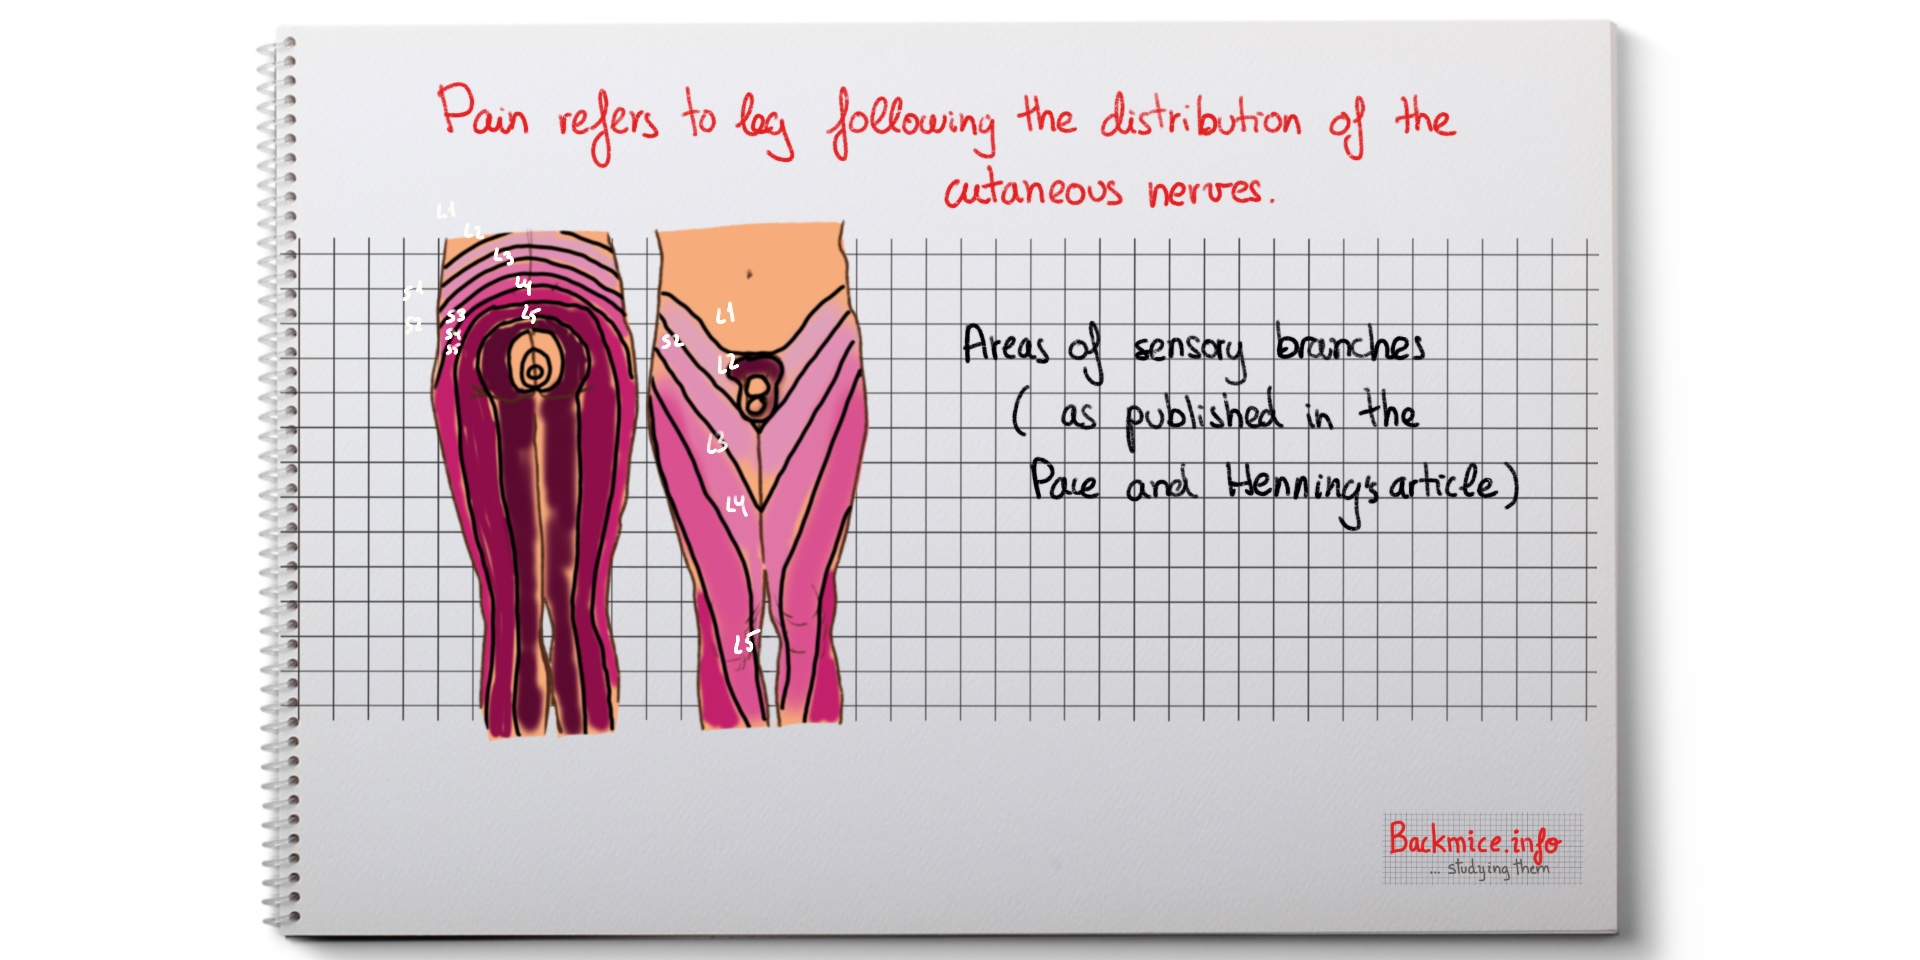 Pain refers to leg following the distribution of the
cutaneous nerves.
L1
L2
L3
L4
L5
S1
S2
S3
S4
S5
L1
S2
L2
L3
L4
L5
Areas of sensory branches
( as published in the
Pace and Henning's article)
Backmice.info
... studying them